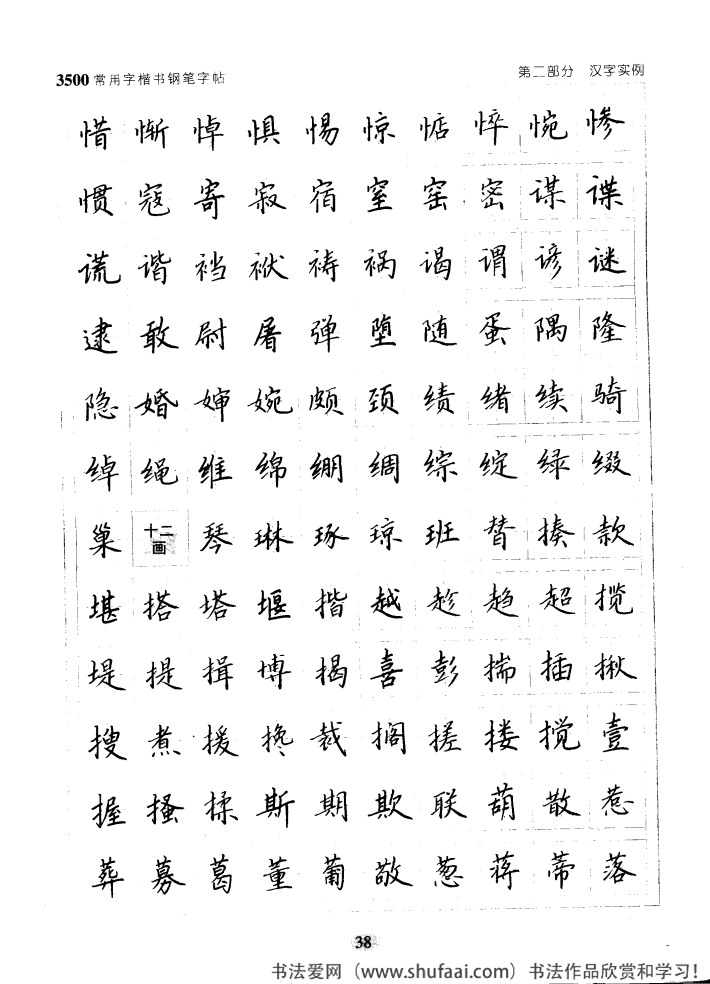 3500常用字楷书钢笔字帖
第二部分 汉字实例
惜 惭 悼 惧 惕 惊 惦 悴 惋 惨
惯 寇 寄 寂 宿 窒 窑 密 谋 谍
谎 谐 裆 袱 祷 祸 谒 谓 谚 谜
逮 敢 尉 屠 弹 堕 随 蛋 隅 隆
隐 婚 婶 婉 颇 颈 绩 绪 续 骑
绰 绳 维 绵 绷 绸 综 绽 绿 缀
巢 十二画 琴 琳 琢 琼 斑 替 揍 款
堪 搭 塔 堰 揩 越 趁 趋 超 揽
堤 提 揖 博 揭 喜 彭 揣 插 揪
搜 煮 援 搀 裁 搁 搓 搂 搅 壹
握 搔 揉 斯 期 欺 联 葫 散 惹
葬 募 葛 董 葡 敬 葱 蒋 蒂 落
38
书法爱网（www.shufaai.com）书法作品欣赏和学习！